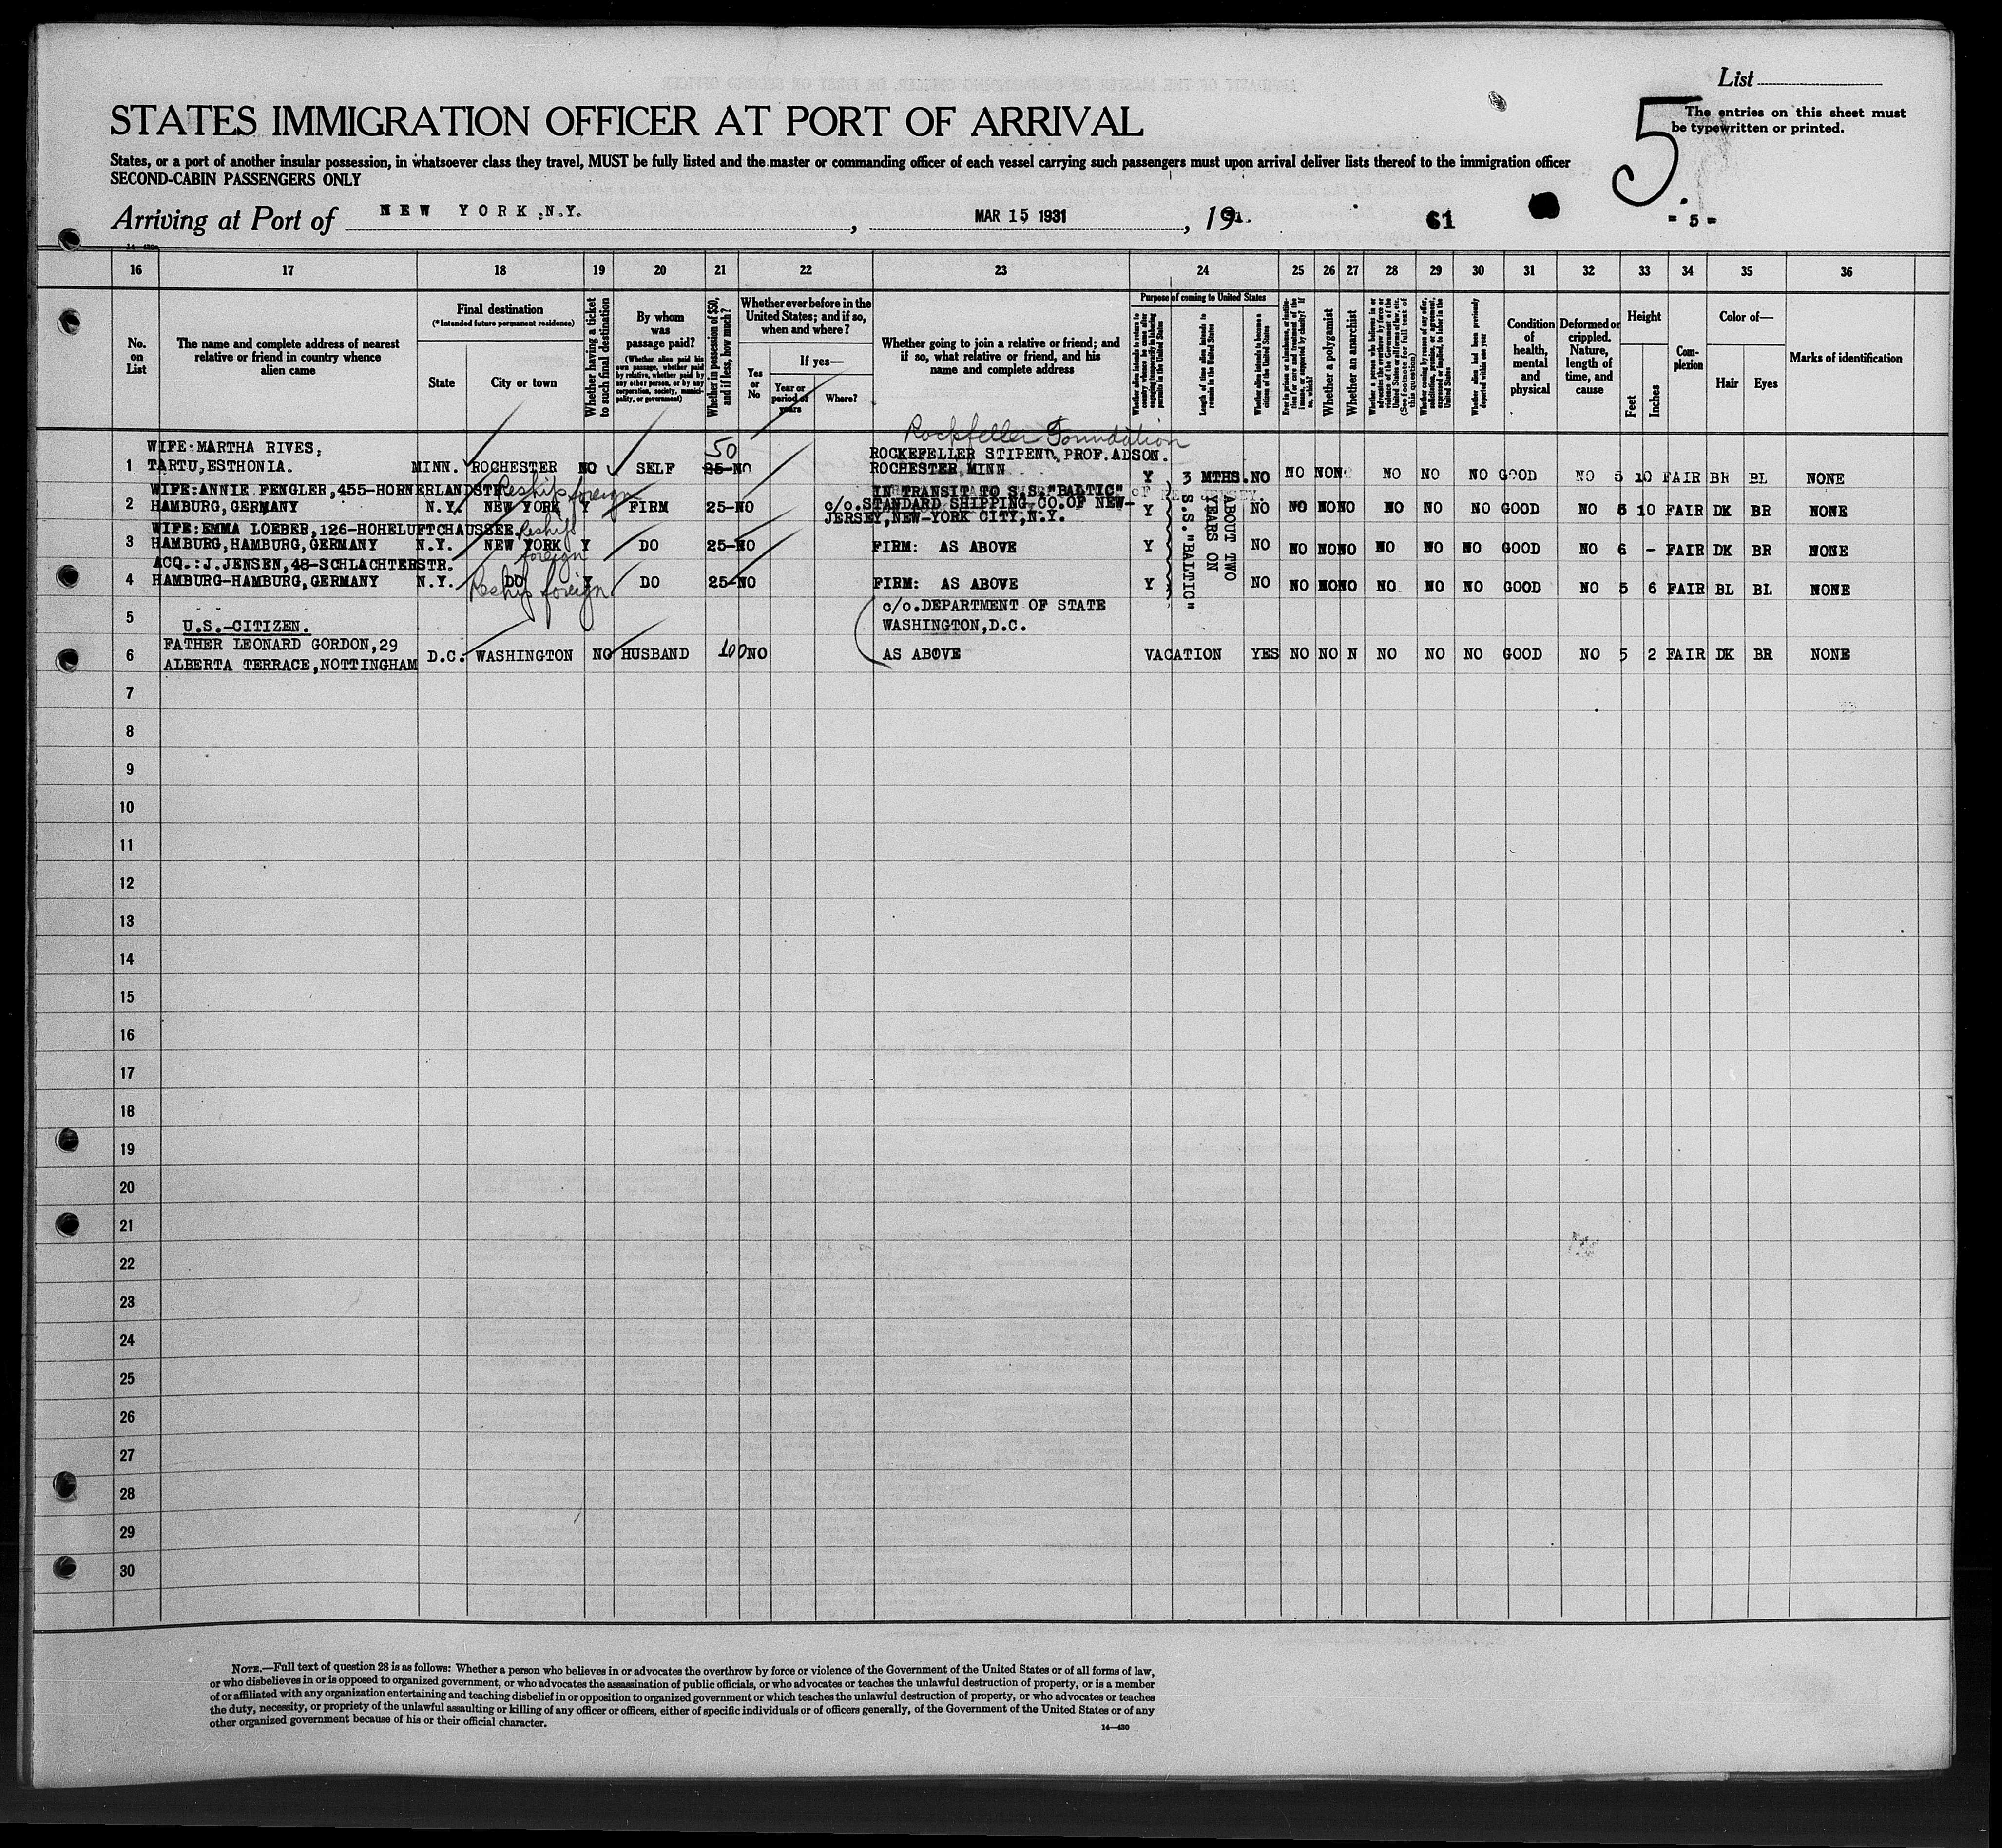 List
STATES IMMIGRATION OFFICER AT PORT OF ARRIVAL
5
The entries on this sheet must
be typewritten or printed.
States, or a port of another insular possession, in whatsoever class they travel, MUST be fully listed and the master or commanding officer of each vessel carrying such passengers must upon arrival deliver lists thereof to the immigration officer
SECOND-CABIN PASSENGERS ONLY
Arriving at Port of NEW YORK,N.Y. , MAR 15 1931 , 1931. 61 - 5 -
14-430
16 17 18 19 20 21 22 23 24 25 26 27 28 29 30 31 32 33 34 35 36
No. on List
The name and complete address of nearest relative or friend in country whence alien came
Final destination
(*Intended future permanent residence)
State City or town
Whether having a ticket to such final destination
By whom was passage paid?
(Whether alien paid his own passage, whether paid by relative, whether paid by any other person, or by any corporation, society, municipality, or government)
Whether in possession of $50, and if less, how much?
Whether ever before in the United States; and if so, when and where?
Yes or No
If yes—
Year or period of years
Where?
Whether going to join a relative or friend; and if so, what relative or friend, and his name and complete address
Purpose of coming to United States
Whether alien intends to return to country whence he came after engaging temporarily in laboring pursuits in the United States
Length of time alien intends to remain in the United States
Whether alien intends to become a citizen of the United States
Ever in prison or almshouse, or institution for care and treatment of the insane, or supported by charity? If so, which?
Whether a polygamist
Whether an anarchist
Whether a person who believes in or advocates the overthrow by force or violence of the Government of the United States or all forms of law, etc. (See footnote for full text of this question)
Whether coming by reason of any offer, solicitation, promise, or agreement, expressed or implied, to labor in the United States
Whether alien had been previously deported within one year
Condition of health, mental and physical
Deformed or crippled. Nature, length of time, and cause
Height
Feet Inches
Complexion
Color of—
Hair Eyes
Marks of identification
Rockfeller Foundation
WIFE:MARTHA RIVES, 50 ROCKEFELLER STIPEND, PROF.ADSON.
1 TARTU,ESTHONIA. MINN. ROCHESTER NO SELF 25-NO ROCHESTER MINN Y 3 MTHS. NO NO NO NO NO NO NO GOOD NO 5 10 FAIR BR BL NONE
WIFE:ANNIE FENGLER,455-HORNERLANDSTR. Reship foreign IN TRANSIT TO S.S."BALTIC"
2 HAMBURG,GERMANY N.Y. NEW YORK Y FIRM 25-NO c/o.STANDARD SHIPPING CO.OF NEW-
JERSEY,NEW-YORK CITY,N.Y. Y NO NO NO NO NO NO NO GOOD NO 5 10 FAIR DK BR NONE
ABOUT TWO YEARS ON S.S."BALTIC"
WIFE:EMMA LOEBER,126-HOHELUFTCHAUSSEE. Reship foreign
3 HAMBURG,HAMBURG,GERMANY N.Y. NEW YORK Y DO 25-NO FIRM: AS ABOVE Y NO NO NO NO NO NO NO GOOD NO 6 - FAIR DK BR NONE
ACQ.:J.JENSEN,48-SCHLACHTERSTR.
4 HAMBURG-HAMBURG,GERMANY N.Y. DO Reship foreign Y DO 25-NO FIRM: AS ABOVE Y NO NO NO NO NO NO NO GOOD NO 5 6 FAIR BL BL NONE
c/o.DEPARTMENT OF STATE
5 U.S.-CITIZEN. WASHINGTON,D.C.
FATHER LEONARD GORDON,29
6 ALBERTA TERRACE,NOTTINGHAM D.C. WASHINGTON NO HUSBAND 100 NO AS ABOVE VACATION YES NO NO N NO NO NO GOOD NO 5 2 FAIR DK BR NONE
7
8
9
10
11
12
13
14
15
16
17
18
19
20
21
22
23
24
25
26
27
28
29
30
NOTE.—Full text of question 28 is as follows: Whether a person who believes in or advocates the overthrow by force or violence of the Government of the United States or of all forms of law,
or who disbelieves in or is opposed to organized government, or who advocates the assassination of public officials, or who advocates or teaches the unlawful destruction of property, or is a member
of or affiliated with any organization entertaining and teaching disbelief in or opposition to organized government or which teaches the unlawful destruction of property, or who advocates or teaches
the duty, necessity, or propriety of the unlawful assaulting or killing of any officer or officers, either of specific individuals or of officers generally, of the Government of the United States or of any
other organized government because of his or their official character.
14—430